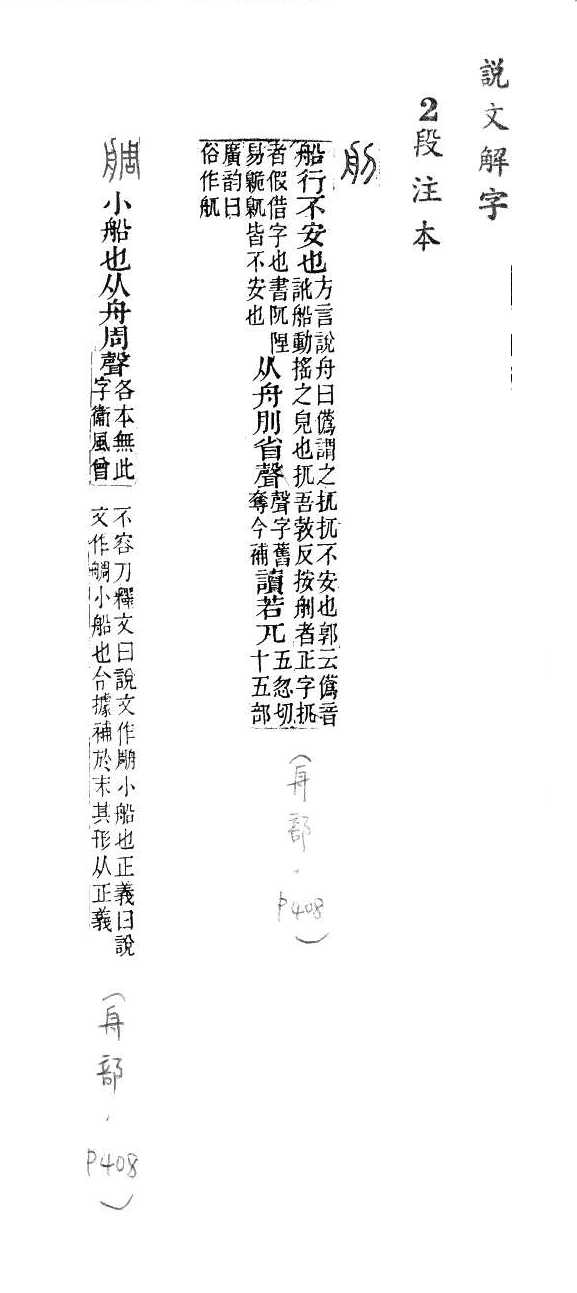 說文解字
2段注本
船行不安也
方言說舟曰僞謂之扤扤不安也郭云僞音
訛船動搖之皃也扤吾敦反按者正字扤
者假借字也書阢陧
易臲卼皆不安也
从舟刖省聲
聲字舊
奪今補
讀若兀
五忽切
十五部
廣韵曰
俗作
(舟部.P408)
小船也从舟周聲
各本無此
字衞風曾
不容刀釋文曰說文作小船也正義曰說
文作䑳小船也今據補於末其形从正義
(舟部.P408)